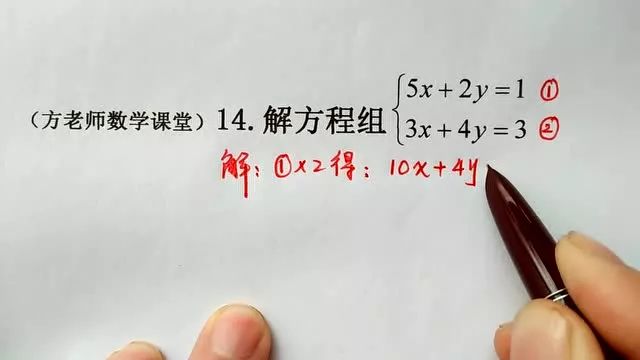 （方老师数学课堂）14.解方程组{5x+2y=1 ①
3x+4y=3 ②
解：①×2得：10x+4y